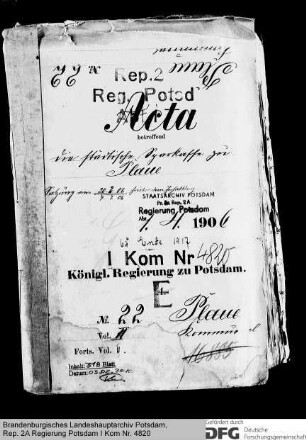 Plaue
No 22
Rep. 2
Reg. Potsd
Acta
betreffend
die städtische Sparkasse zu
Plaue
STAATSARCHIV POTSDAM
Pr. Br. Rep. 2A
Regierung Potsdam
1906
bis Ende 1917
I Kom Nr 4820
Königl. Regierung zu Potsdam.
E
Plaue
No 22
Vol. II
Forts. Vol.
Inhalt: 278 Blatt
Datum:
Brandenburgisches Landeshauptarchiv Potsdam,
Rep. 2A Regierung Potsdam I Kom Nr. 4820
Gefördert durch
DFG Deutsche
Forschungsgemeinschaft